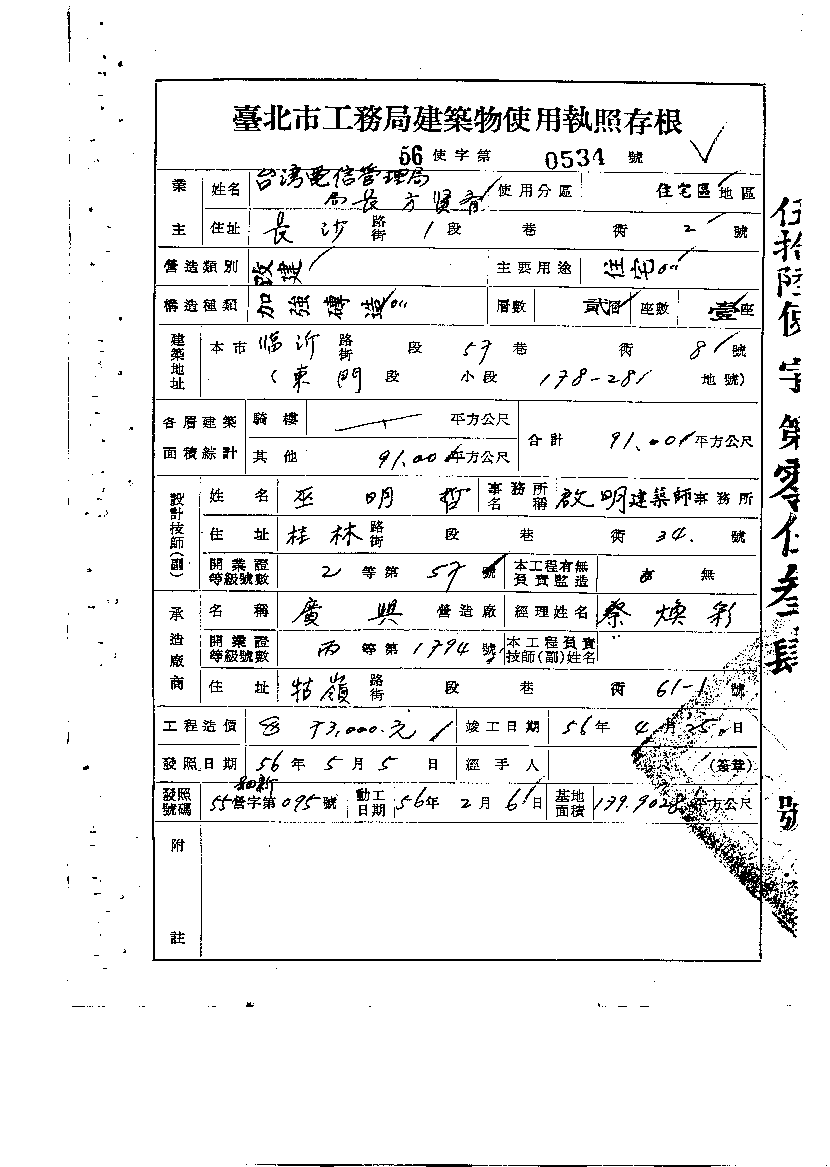 臺北市工務局建築物使用執照存根
56 使字第 0534 號
業主 姓名 台湾電信管理局 局長 方賢齊 使用分區 住宅區 地區
住址 長沙 路街 1 段 巷 衖 2 號
營造類別 改建 主要用途 住宅
構造種類 加強磚造 層數 貳層 座數 壹座
建築地址 本市 臨沂 路街 段 57 巷 衖 8 號
(東門 段 小段 178-28 地號)
各層建築面積綜計 騎樓 平方公尺 合計 91.00 平方公尺
其他 91.00 平方公尺
設計技師(副) 姓名 巫明哲 事務所名稱 啟明建築師事務所
住址 桂林 路街 段 巷 衖 34. 號
開業證等級號數 2 等第 57 號 本工程有無負責監造 有 無
承造廠商 名稱 廣興 營造廠 經理姓名 蔡煥彩
開業證等級號數 丙 等第 1794 號 本工程負責技師(副)姓名 〃
住址 牯嶺 路街 段 巷 衖 61-1 號
工程造價 73,000.元 竣工日期 56年 4月 25日
發照日期 56年 5月 5日 經手人 (簽章)
發照號碼 55營字第095號 動工日期 56年 2月 6日 基地面積 139.9028 平方公尺
附註
伍拾陸使字第零伍叁肆號